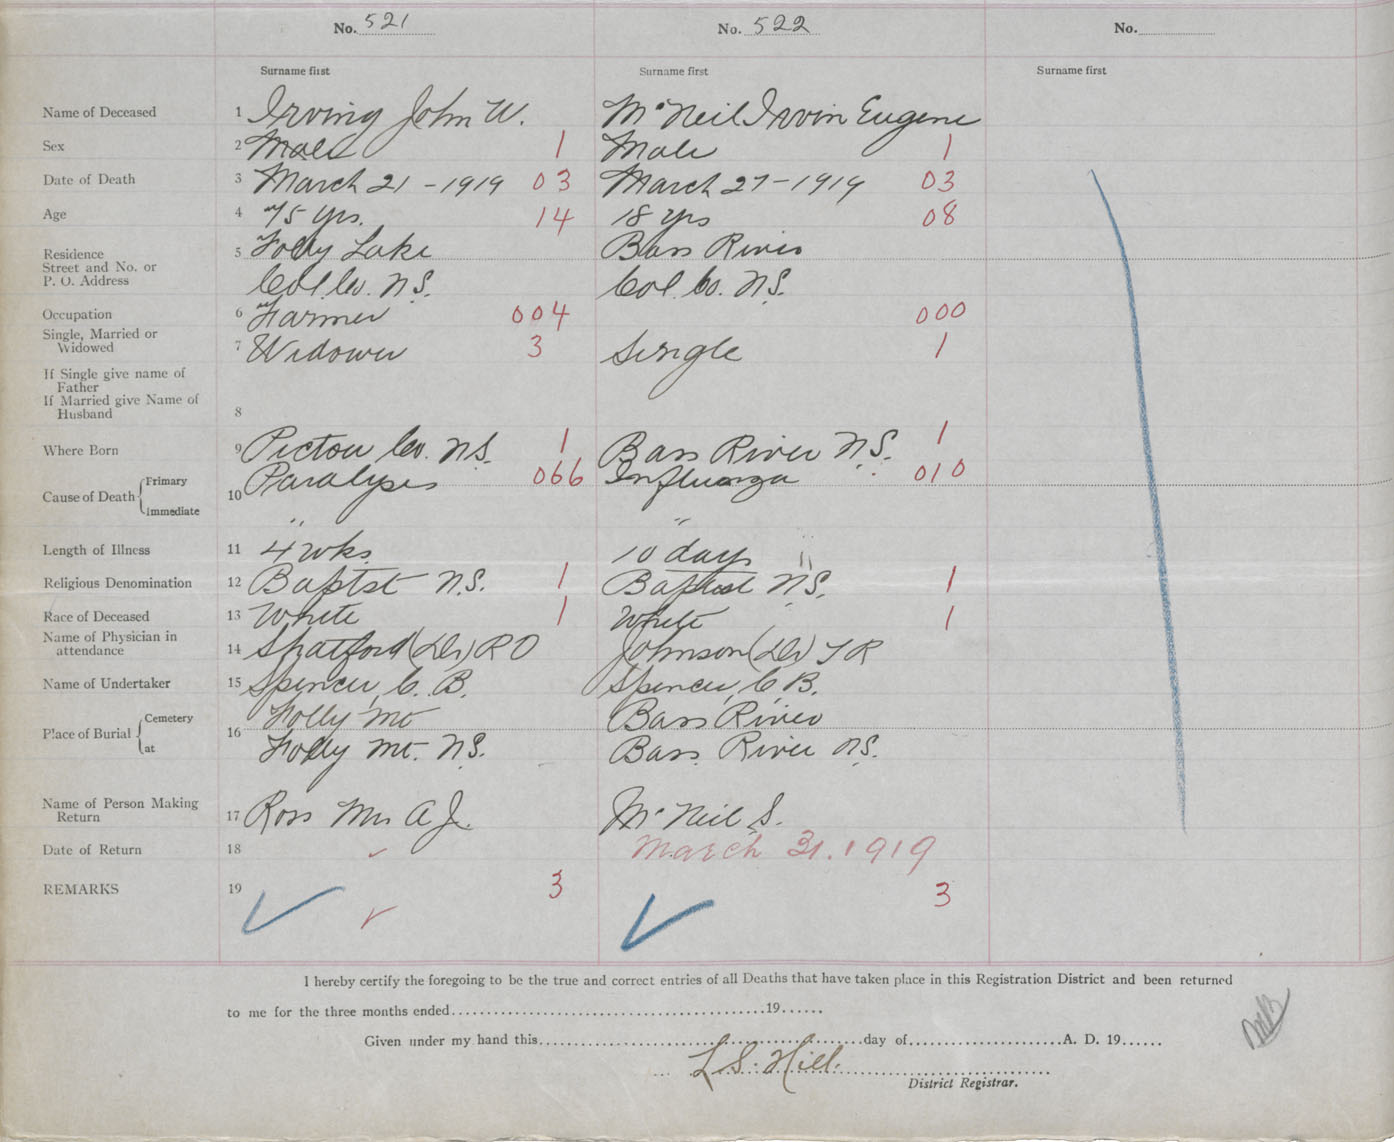 No. 521 No. 522 No.
Surname first Surname first Surname first
Name of Deceased 1 Irving John W. McNeil Irvin Eugene
Sex 2 Male 1 Male 1
Date of Death 3 March 21 - 1919 03 March 27 - 1919 03
Age 4 75 yrs. 14 18 yrs 08
Residence 5 Folly Lake Bass River
Street and No. or
P. O. Address Col. Co. N.S. Col. Co. N.S.
Occupation 6 Farmer 004 000
Single, Married or
Widowed 7 Widower 3 Single 1
If Single give name of
Father
If Married give Name of
Husband 8
Where Born 9 Pictou Co. N.S. 1 Bass River N.S. 1
Cause of Death Primary 10 Paralysis 066 Influenza 010
Immediate " "
Length of Illness 11 4 wks. 10 days
Religious Denomination 12 Baptst N.S. 1 Baptist N.S. 1
Race of Deceased 13 White 1 White 1
Name of Physician in
attendance 14 Shatford (Dr) R O Johnson (Dr) T R
Name of Undertaker 15 Spencer, C. B. Spencer, C. B.
Place of Burial Cemetery 16 Folly Mt Bass River
at Folly Mt. N.S. Bass River N.S.
Name of Person Making
Return 17 Ross Mrs A J. McNeil S.
Date of Return 18 March 31. 1919
REMARKS 19 3 3
I hereby certify the foregoing to be the true and correct entries of all Deaths that have taken place in this Registration District and been returned
to me for the three months ended 19
Given under my hand this day of A. D. 19
L. S. Hill.
District Registrar.